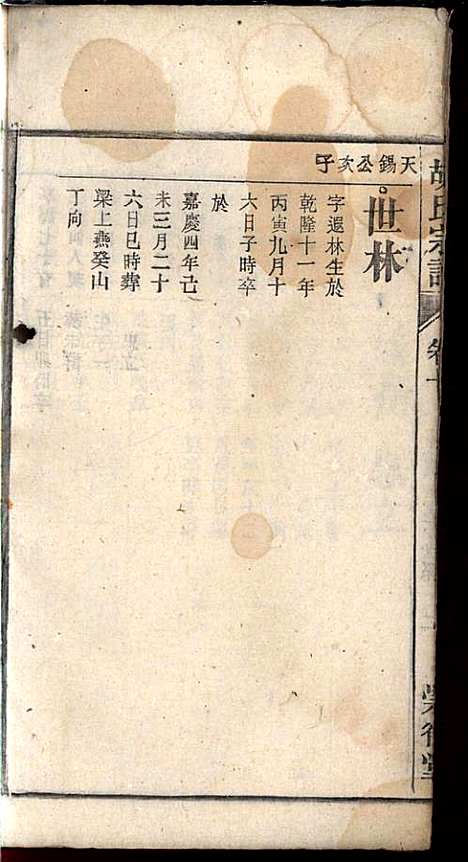 胡氏宗譜
卷十
天錫公次子
世林
字遐林生於
乾隆十一年
丙寅九月十
六日子時卒
於
嘉慶四年己
未三月二十
六日巳時葬
梁上燕癸山
丁向